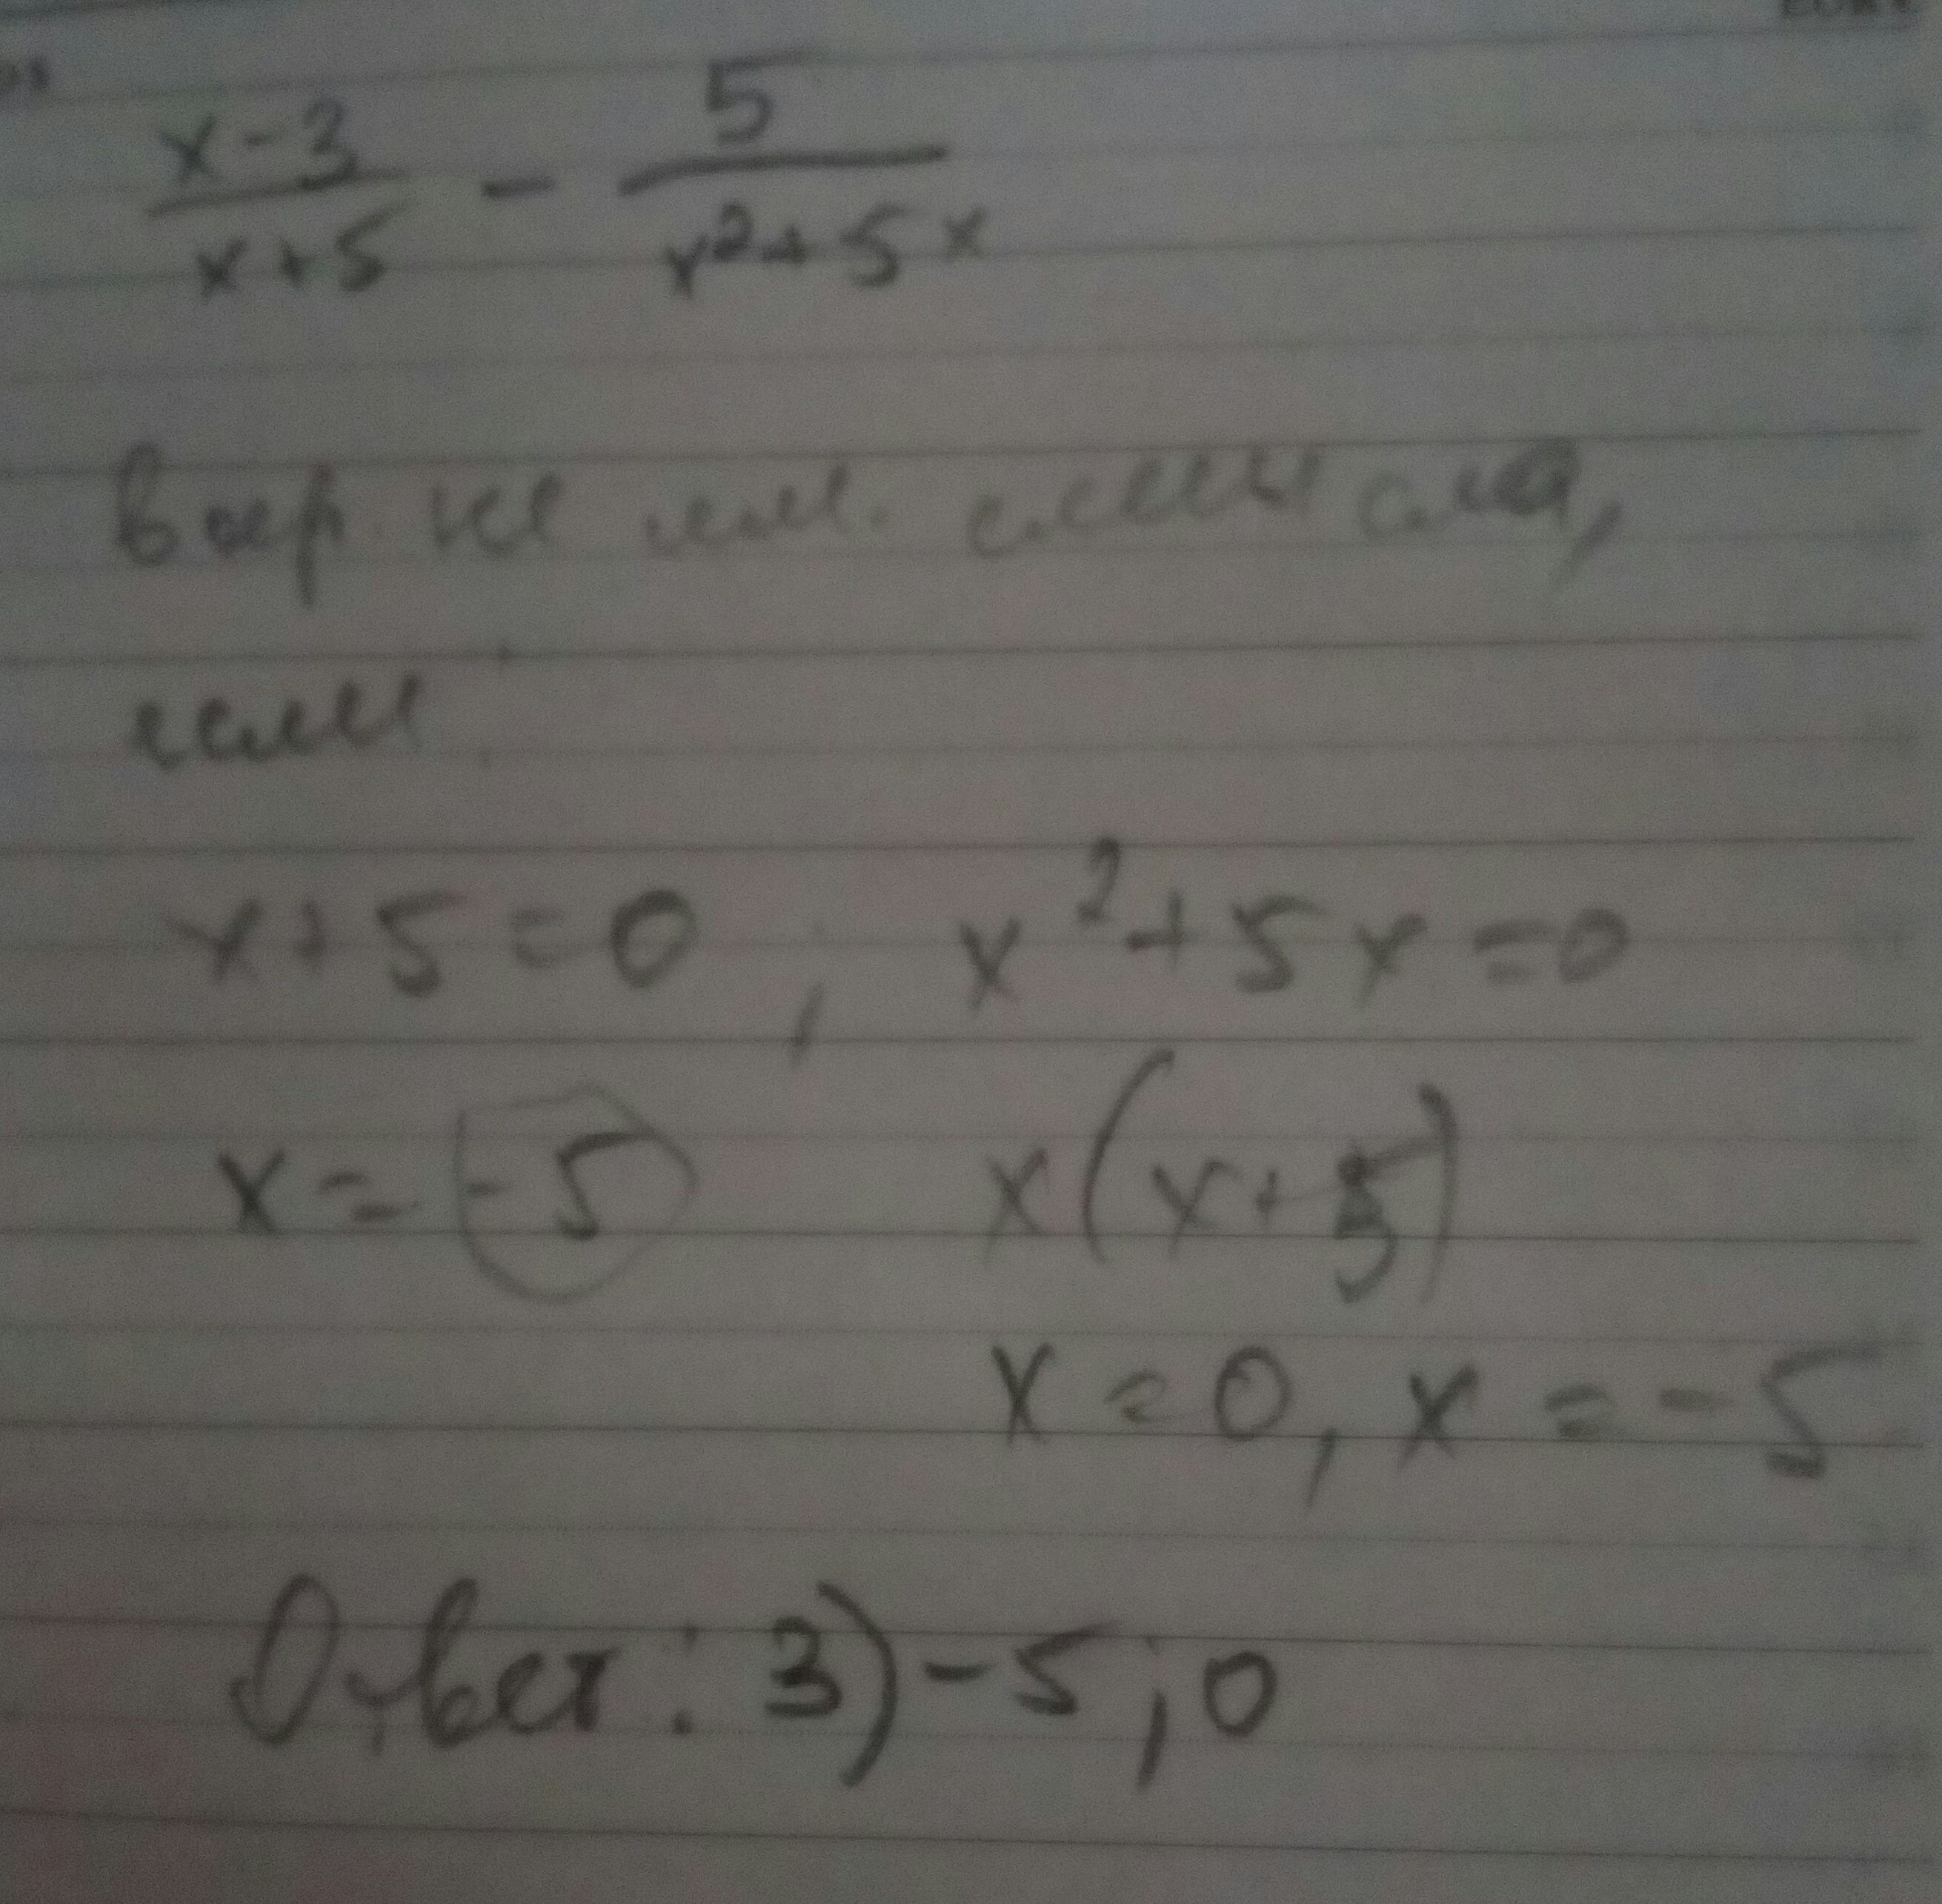 x-3 / x+5 - 5 / x²+5x
выр. не им. смысла,
если
x+5=0, x²+5x=0
x=-5 x(x+5)
x=0, x=-5
Ответ: 3) -5; 0